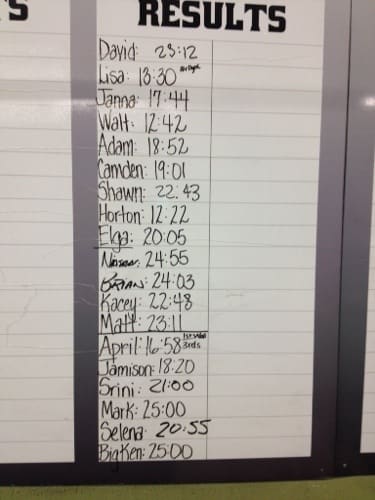 S
RESULTS
David: 23:12
Lisa: 13:30
Janna: 17:44
Walt: 12:42
Adam: 18:52
Camden: 19:01
Shawn: 22:43
Horton: 12:22
Elga: 20:05
24:55
BRIAN: 24:03
Kacey: 22:48
Matt: 23:11
April: 16:58 3rds
Jamison: 18:20
Srini: 21:00
Mark: 25:00
Selena: 20:55
Big Ken: 25:00